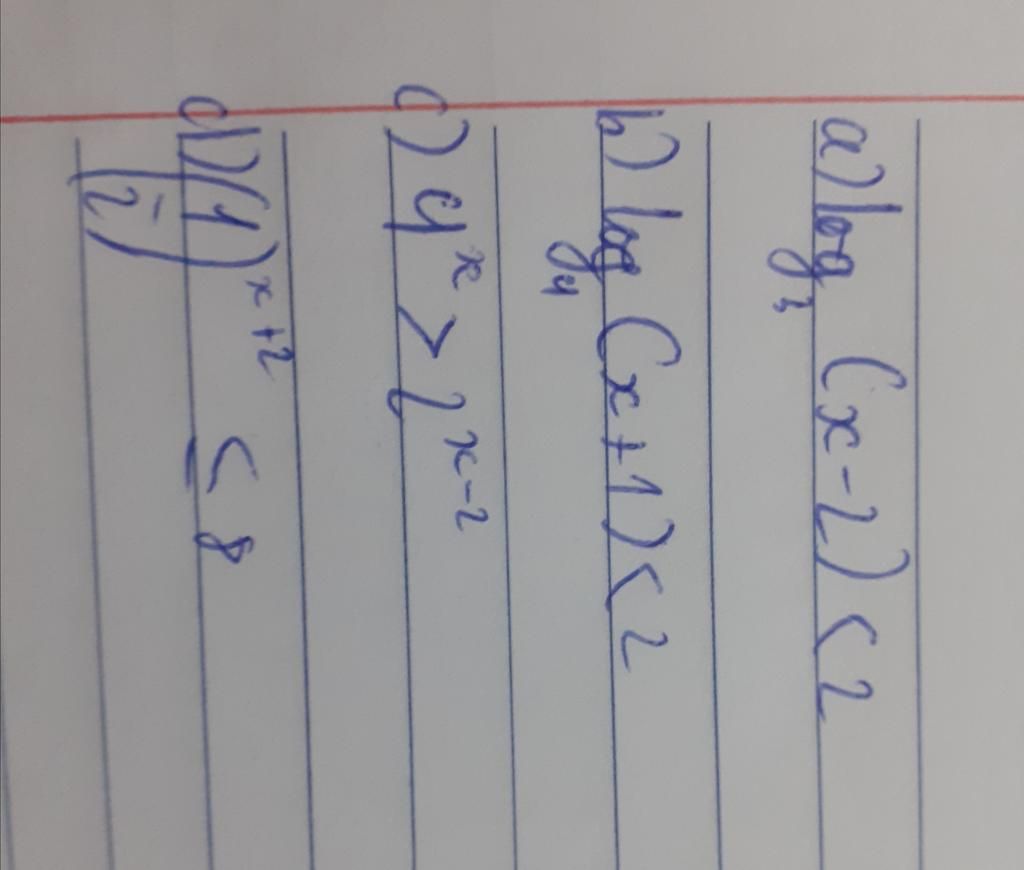 a) log₃ (x-2) < 2
b) log₄ (x+1) < 2
c) 4ˣ > 2ˣ⁻²
d) (1/2)ˣ⁺² ≤ 8